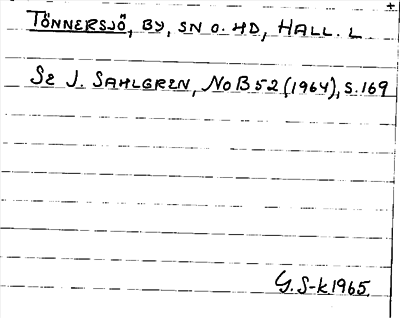 TÖNNERSJÖ, BY, SN O. HD, HALL. L.
SE J. SAHLGREN, NoB 52 (1964), S. 169
G. S-k 1965.